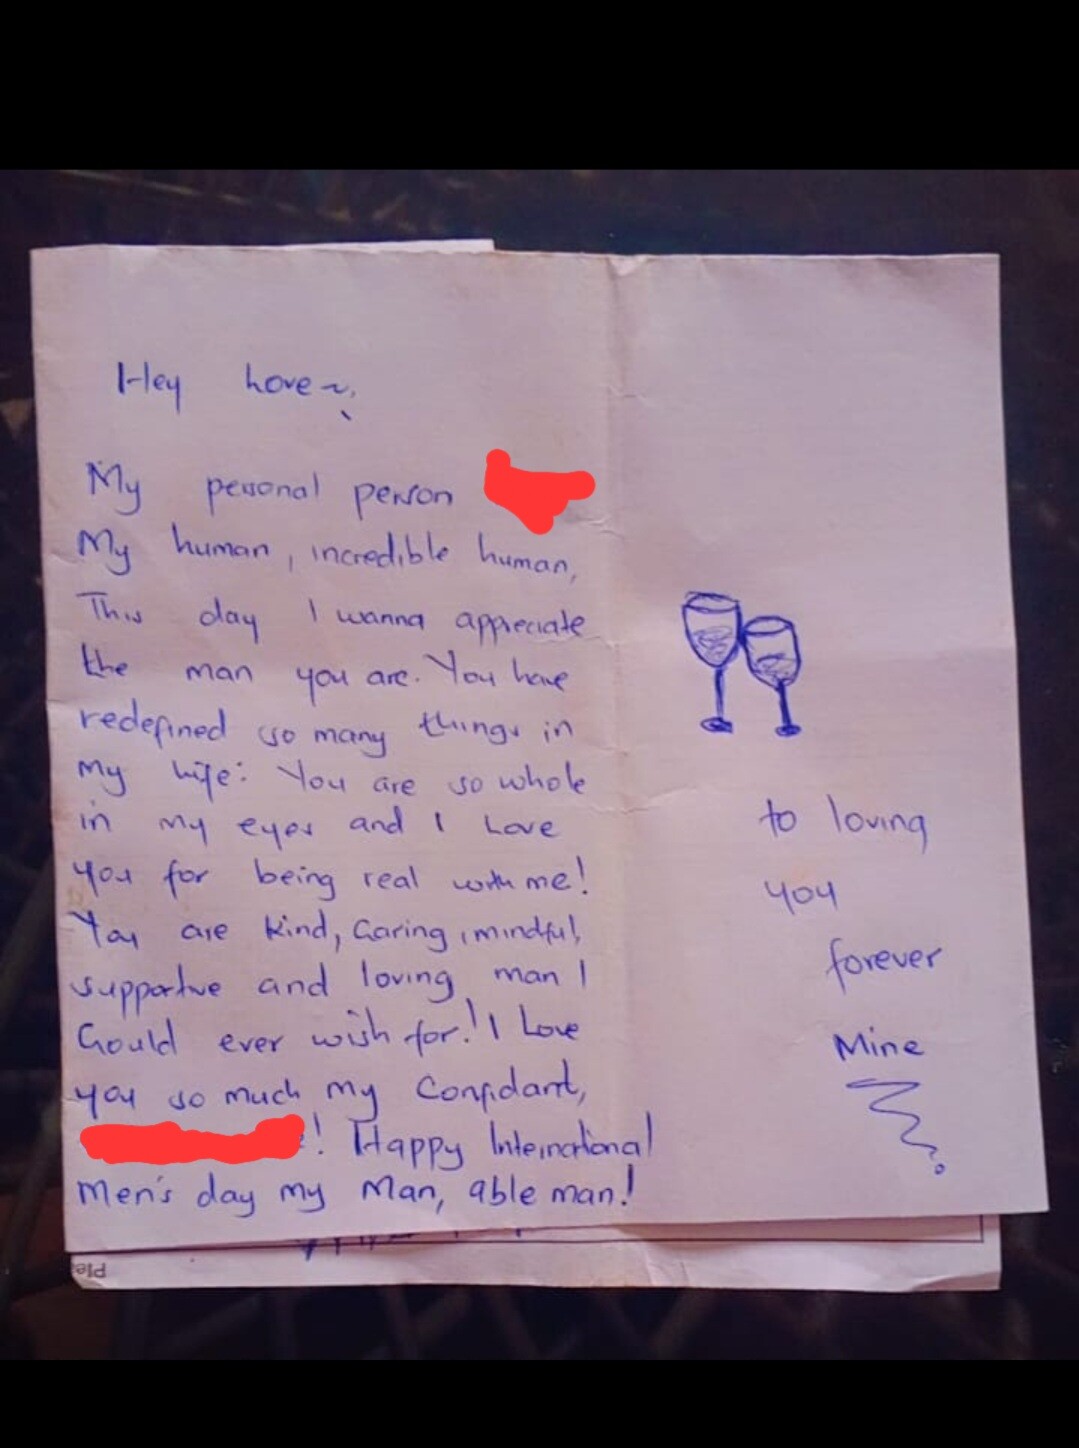 Hey Love~,
My personal person
My human, incredible human,
This day I wanna appreciate
the man you are. You have
redefined so many things in
My Life: You are so whole
in my eyes and I Love
you for being real with me!
You are kind, Caring, mindful,
supportive and loving man I
Could ever wish for! I Love
you so much my Confidant,
! Happy International
Men's day my Man, able man!
to loving
you
forever
Mine
Ple